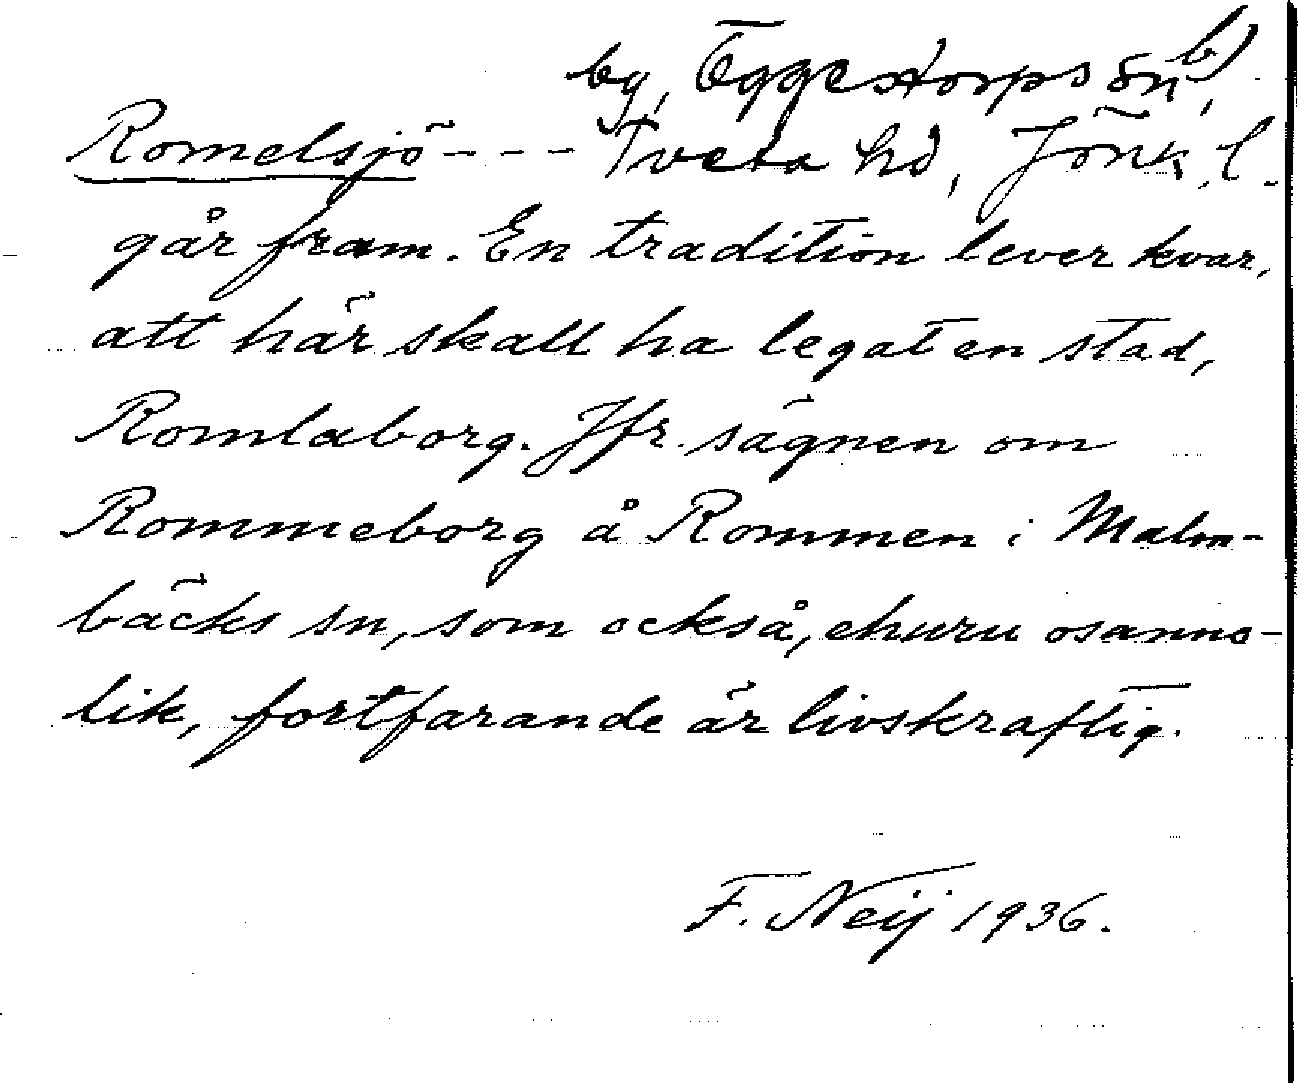 by, Öggestorps sn, b)
Romelsjö - - - Tveta hd, Jönk. l.
går fram. En tradition lever kvar,
att här skall ha legat en stad,
Romlaborg. Jfr. sägnen om
Rommeborg å Rommen i Malm-
bäcks sn, som också, ehuru osanno-
lik, fortfarande är livskraftig.
F. Neij 1936.